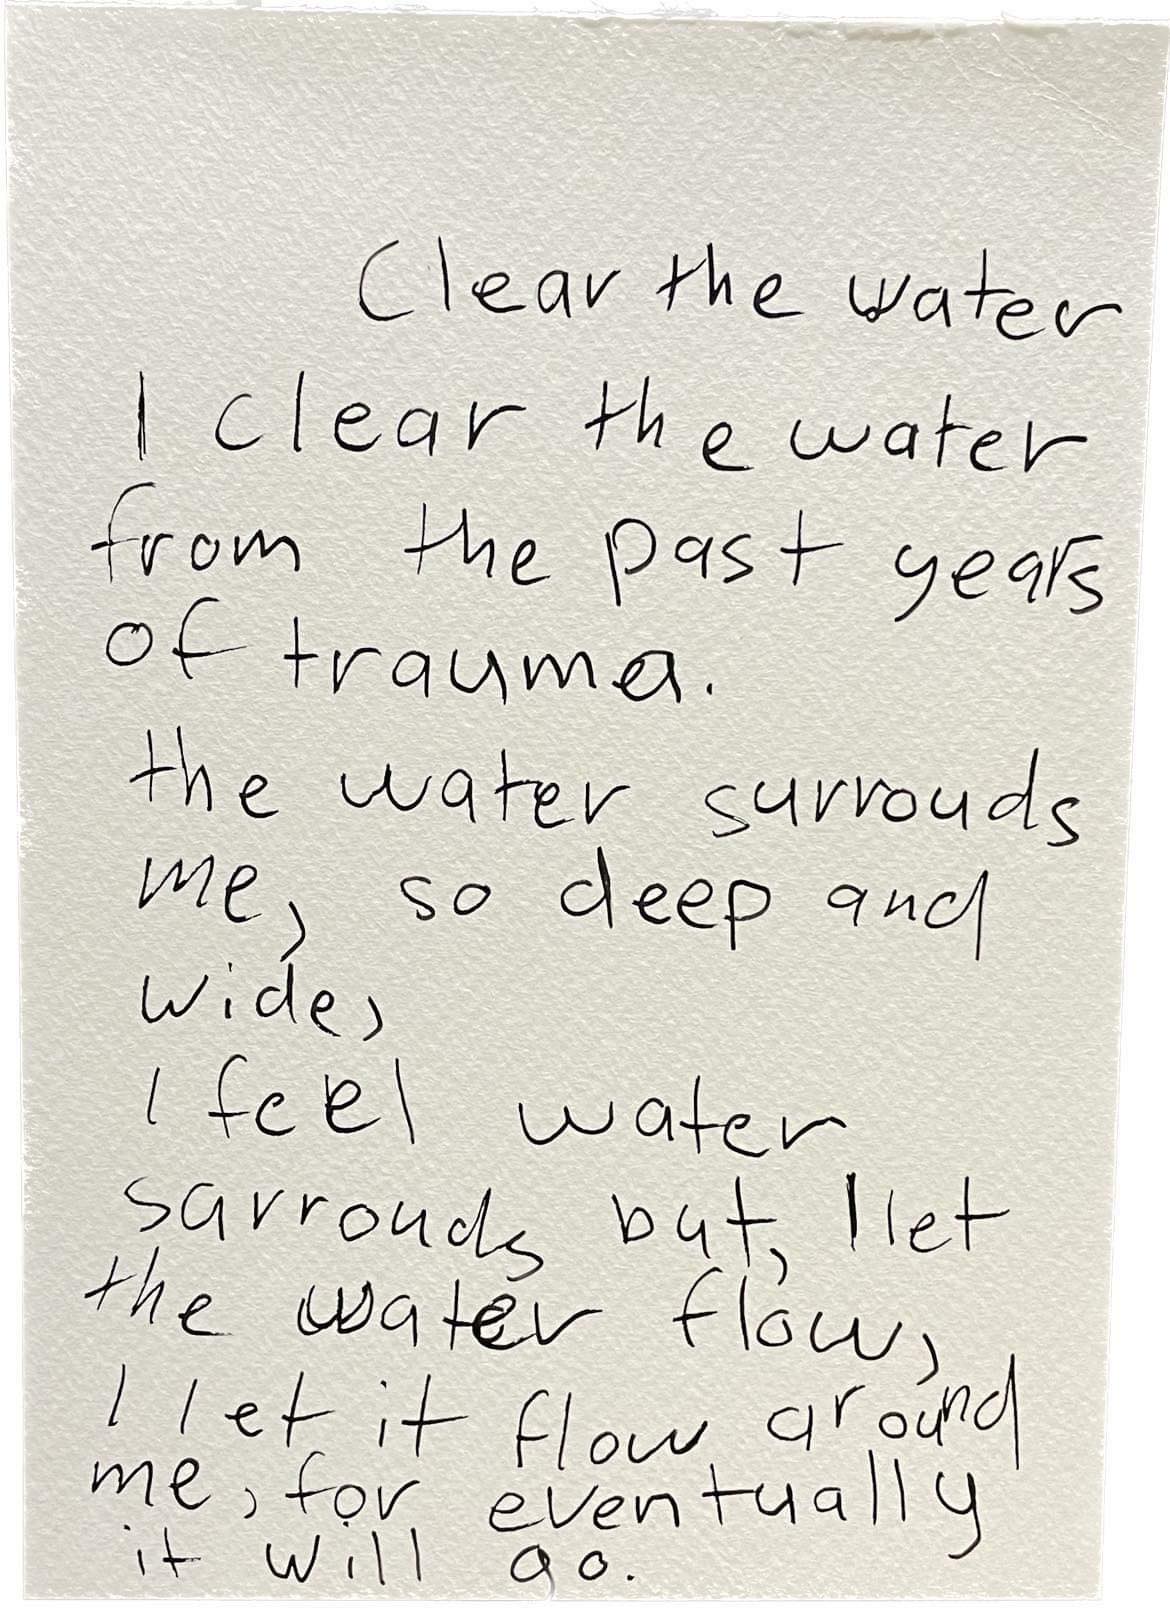 Clear the water
I clear the water
from the past years
of trauma.
the water surrouds
me, so deep and
wide,
I feel water
sarrouds but, I let
the water flow,
I let it flow around
me, for eventually
it will go.